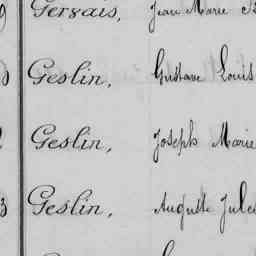 Gervais, Jean Marie
Geslin, Gustave Louis
Geslin, Joseph Marie
3 Geslin, Auguste Jules